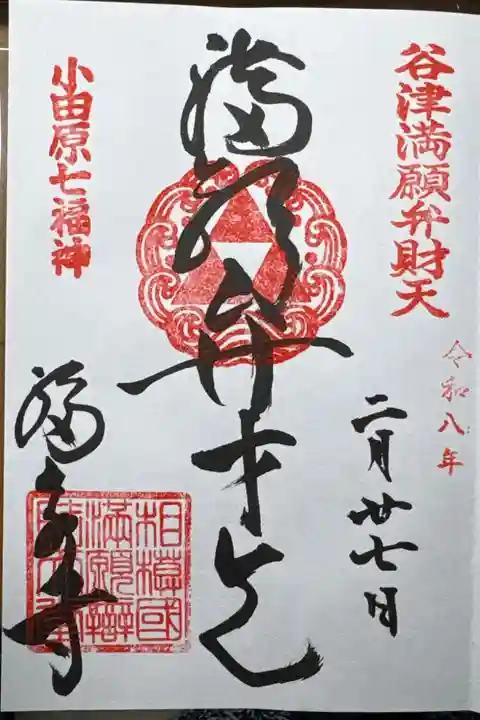 谷津満願弁財天
令和八年
二月廿七日
満願弁才天
小田原七福神
相模國
満願辯